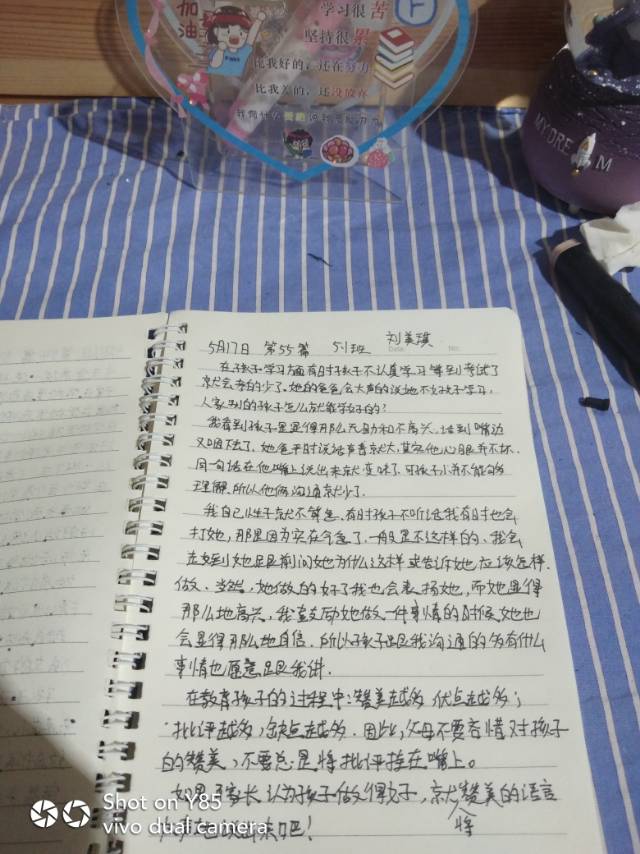 加油
学习很苦
坚持很累
比我好的，还在努力
比我差的，还没放弃
我有什么资格说我无能为力
MY DREAM
刘美琪
5月17日 第55篇 51班
Date No.
在孩子学习方面有时孩子不认真学习等到考试了
就会考的少了。她的爸爸会大声的说她不好好学习，
人家别的孩子怎么就能学好的？
我看到孩子显得那么无助和不高兴。话到嘴边
又咽下去了，她爸平时说话声音就大，其实他心眼并不坏。
同一句话在他嘴上说出来就变味了。可孩子小并不能够
理解，所以他俩沟通就少了。
我自己性子就不算急。有时孩子不听话我有时也会
打她，那是因为实在气急了，一般是不这样的。我会
走到她跟前问她为什么这样或告诉她应该怎样
做。当然，她做的好了我也会表扬她，而她显得
那么地高兴，我鼓励她做一件事情的时候，她也
会显得那么地自信。所以孩子跟我沟通的多有什么
事情也愿意跟我讲．
在教育孩子的过程中：赞美越多，优点越多；
批评越多，缺点越多．因此，父母不要吝惜对孩子
的赞美，不要总是将批评挂在嘴上。
如果家长认为孩子做得好，就将赞美的语言
大声地说出来吧！
Shot on Y85
vivo dual camera